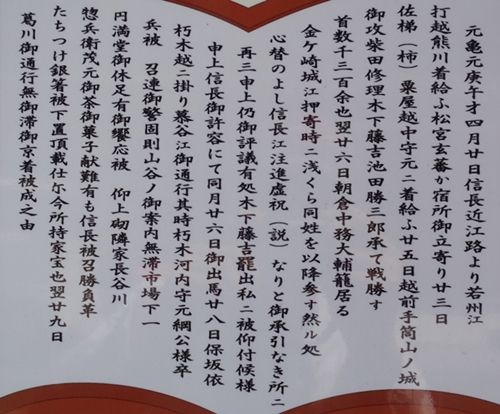 元亀元庚午才四月廿日信長近江路より若州江
打越熊川着給ふ松宮玄蕃か宿所御立寄り廿三日
佐梯（柿）粟屋越中守元ニ着給ふ廿五日越前手筒山ノ城
御攻柴田修理木下藤吉池田勝三郎承て戦勝す
首数千三百余也翌廿六日朝倉中務大輔籠居る
金ケ崎城江押寄時ニ浅くら同姓を以降参す然ル処
心替のよし信長江注進虚祝（説）なりと御承引なき所ニ
再三申上仍御評議有処木下藤吉罷出私ニ被仰付候様
申上信長御許容にて同月廿六日御出馬廿八日保坂依
朽木越ニ掛り慕谷江御通行其時朽木河内守元綱公様卒
兵被　召連御警固則山谷ノ御案内無滞市場下一
円満堂御休足有御饗応被　仰上砌隣家長谷川
惣兵衛茂元御茶御菓子献難有も信長被召勝負革
たちつけ銀着被下置頂戴仕尓今所持家宝也翌廿九日
葛川御通行無御滞御京着被成之由